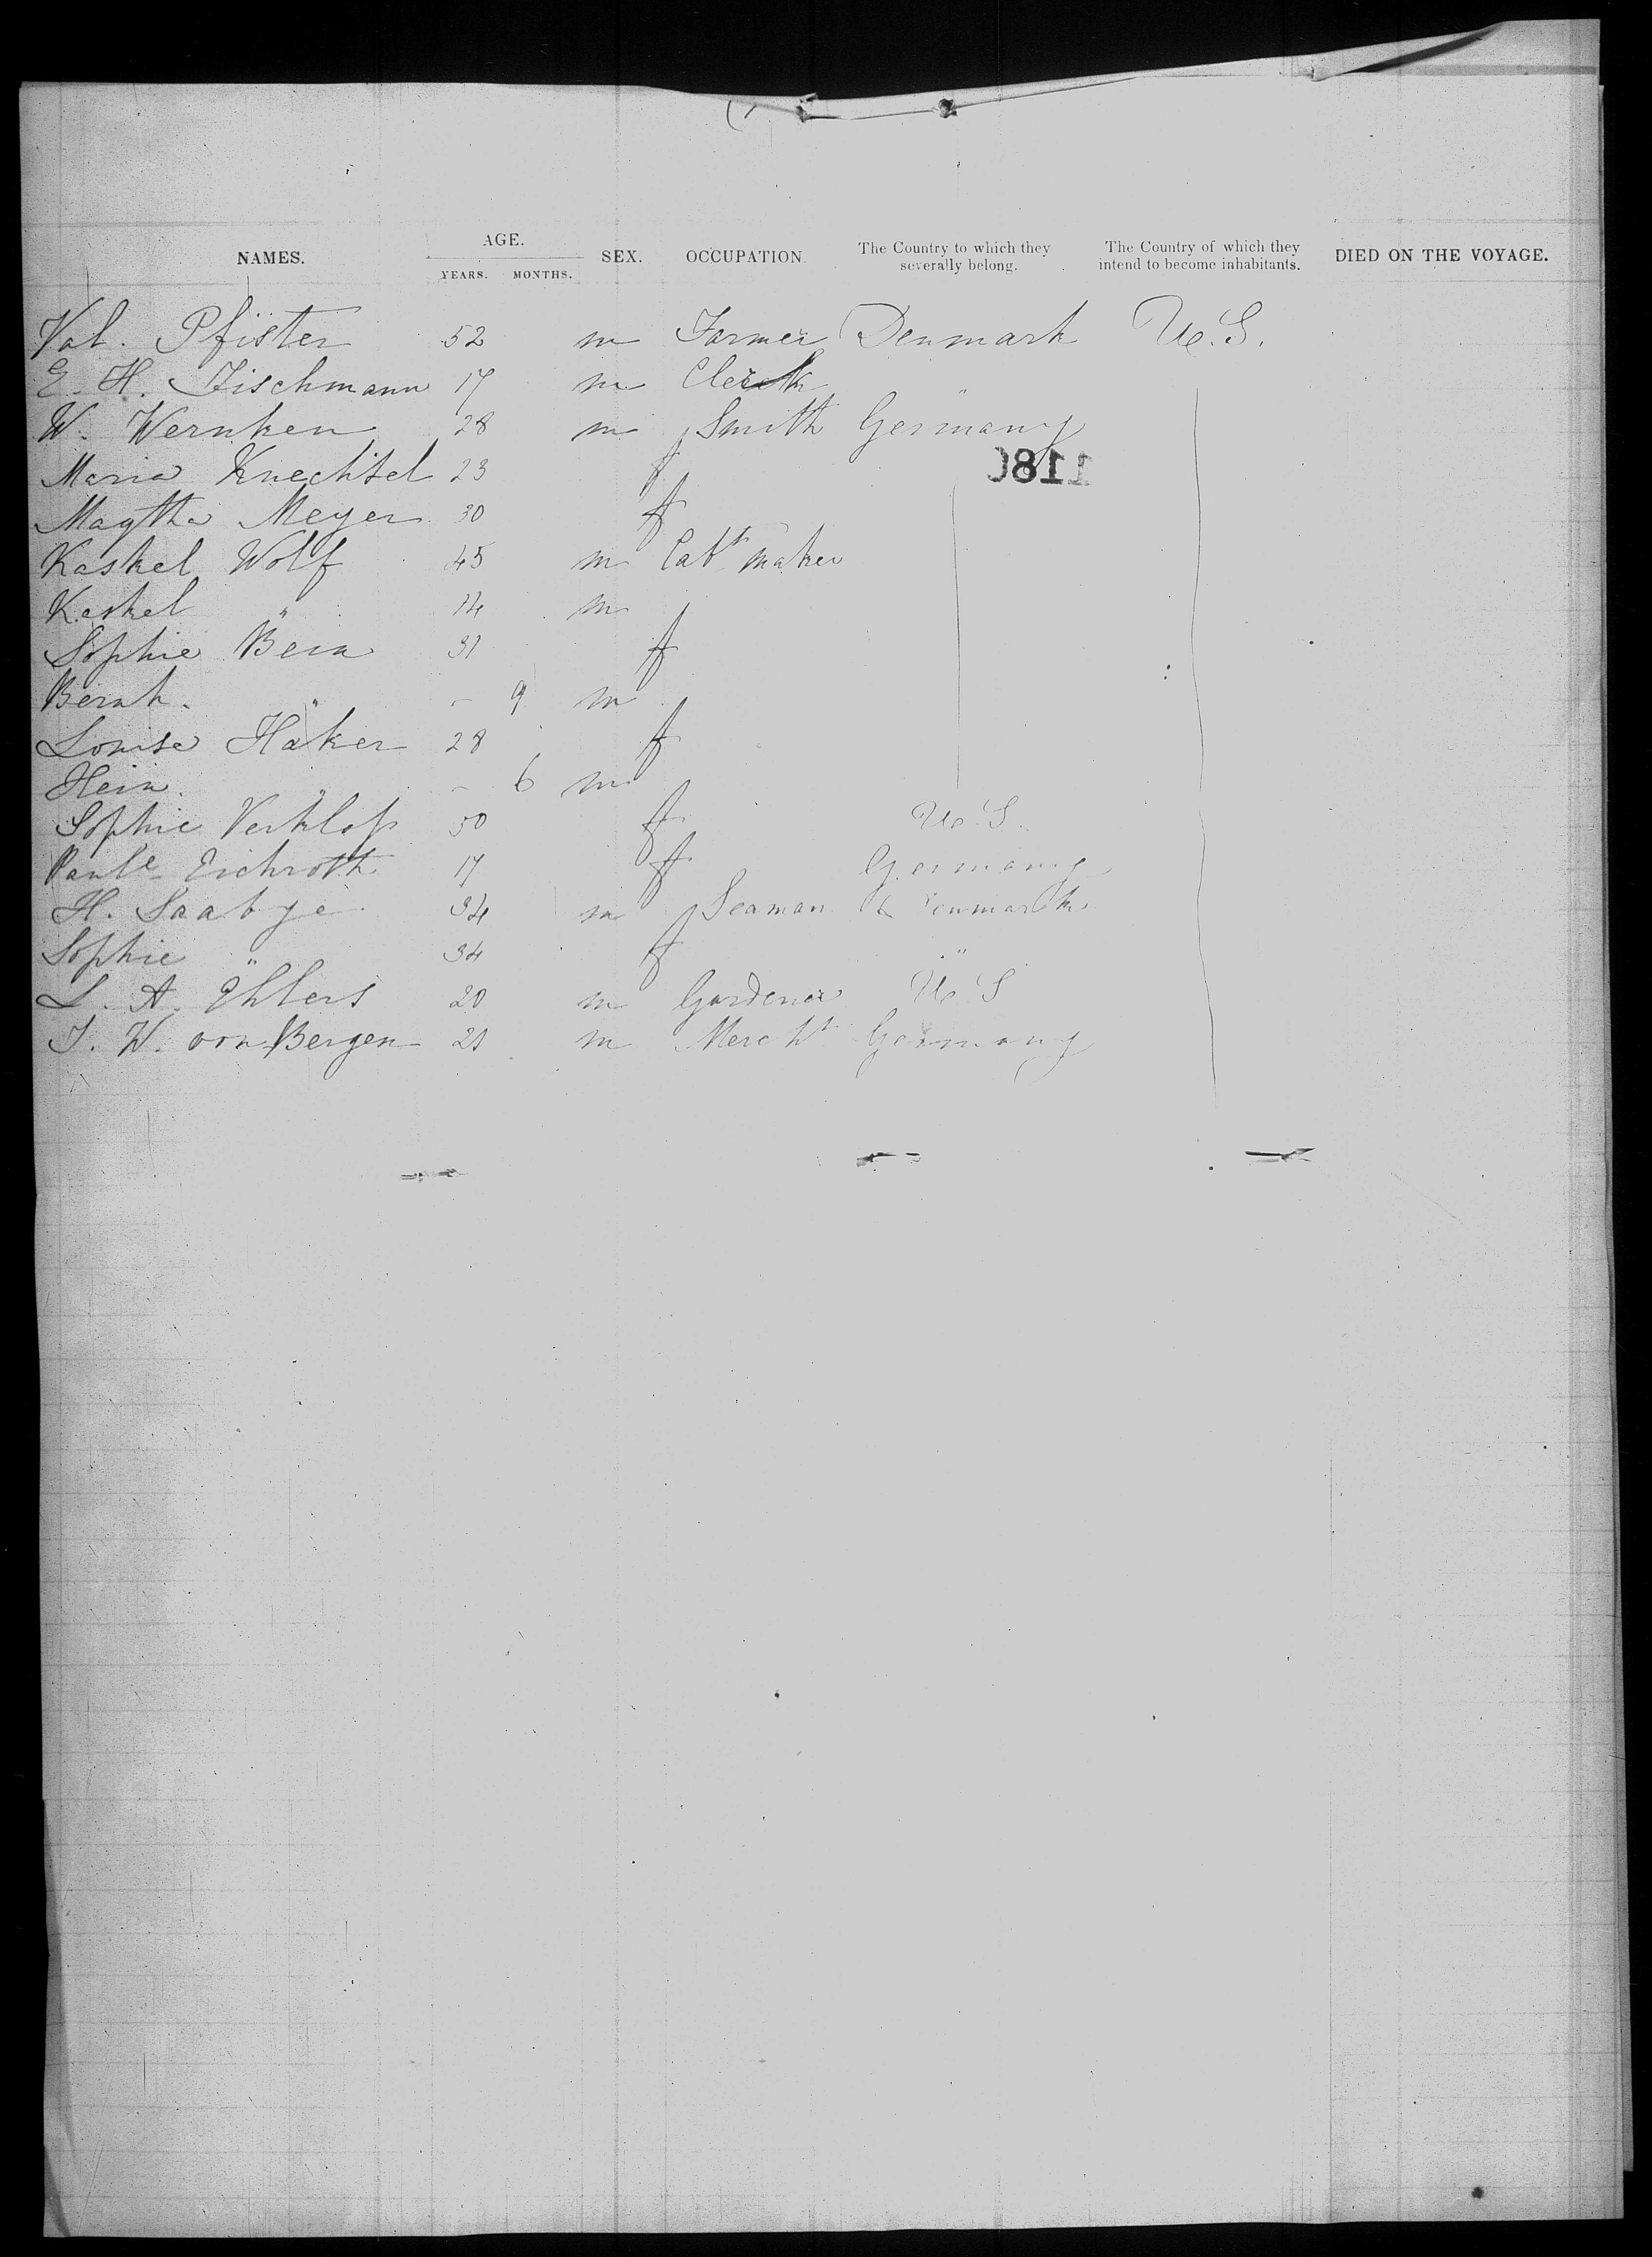 NAMES. AGE. YEARS. MONTHS. SEX. OCCUPATION. The Country to which they severally belong. The Country of which they intend to become inhabitants. DIED ON THE VOYAGE.
Val. Pfister 52 m Farmer Denmark U.S.
E. H. Fischmann 17 m Clerk "
W. Wernken 28 m Smith Germany
Maria Knechtel 23 f
1180
Magtha Meyer 30 f
Kaskel Wolf 45 m Cabt maker
Keskel " 14 m
Sophie Bein 31 f
Bernh. " – 9 m
Louise Haker 28 f
Hein. " – 6 m
Sophie 50 f U.S.
Paule Eichroth 17 f Germany
H. Saabye 34 m Seaman Denmark
Sophie " 34 f "
L. A. Ehlers 20 m Gardener U.S
J. W. von Bergen 21 m Mercht Germany